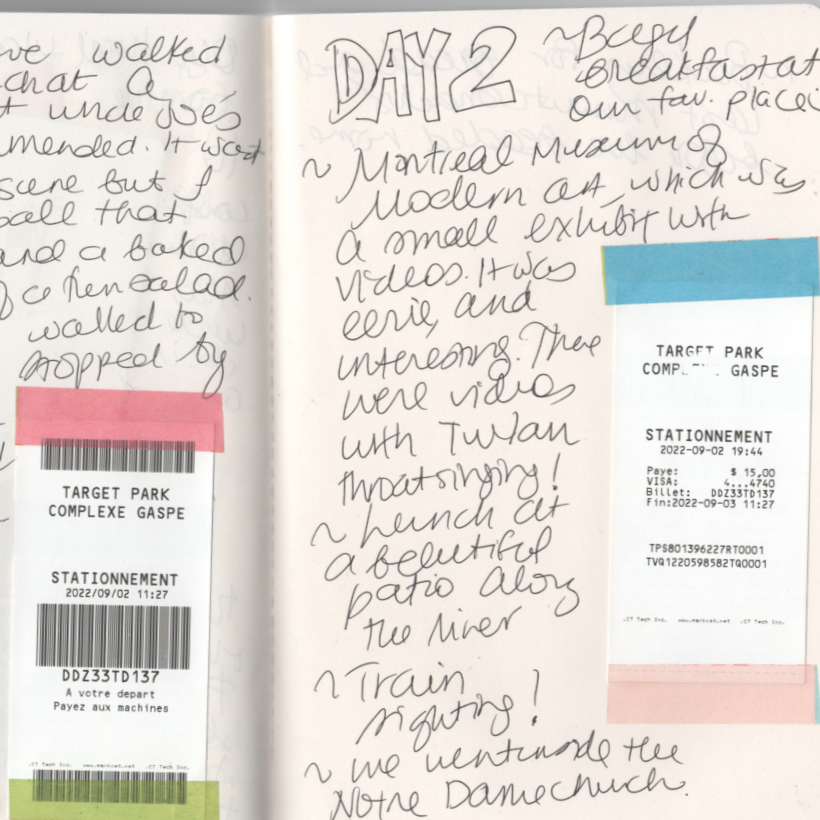 we walked
that a
t uncle joes
mmended. It wasn't
scene but I
call that
and a baked
of a fun salad.
walked to
stopped by
TARGET PARK
COMPLEXE GASPE
STATIONNEMENT
2022/09/02 11:27
DDZ33TD137
A votre depart
Payez aux machines
.CT Tech Inc. www.parknet.net .CT Tech Inc.
DAY 2
~Bagel
Breakfast at
our fav. place
~ Montreal Museum of
Modern art, which was
a small exhibit with
videos. It was
eerie, and
interesting. There
were videos
with Tuvan
throatsinging!
~ Lunch at
a beautiful
patio along
the river
~ Train
sighting!
~ we went inside the
Notre Dame church.
TARGET PARK
COMPLEXE GASPE
STATIONNEMENT
2022-09-02 19:44
Paye: $ 15,00
VISA: 4...4740
Billet: DDZ33TD137
Fin:2022-09-03 11:27
TPS801396227RT0001
TVQ1220598582TQ0001
.CT Tech Inc. www.parknet.net .CT Tech Inc.